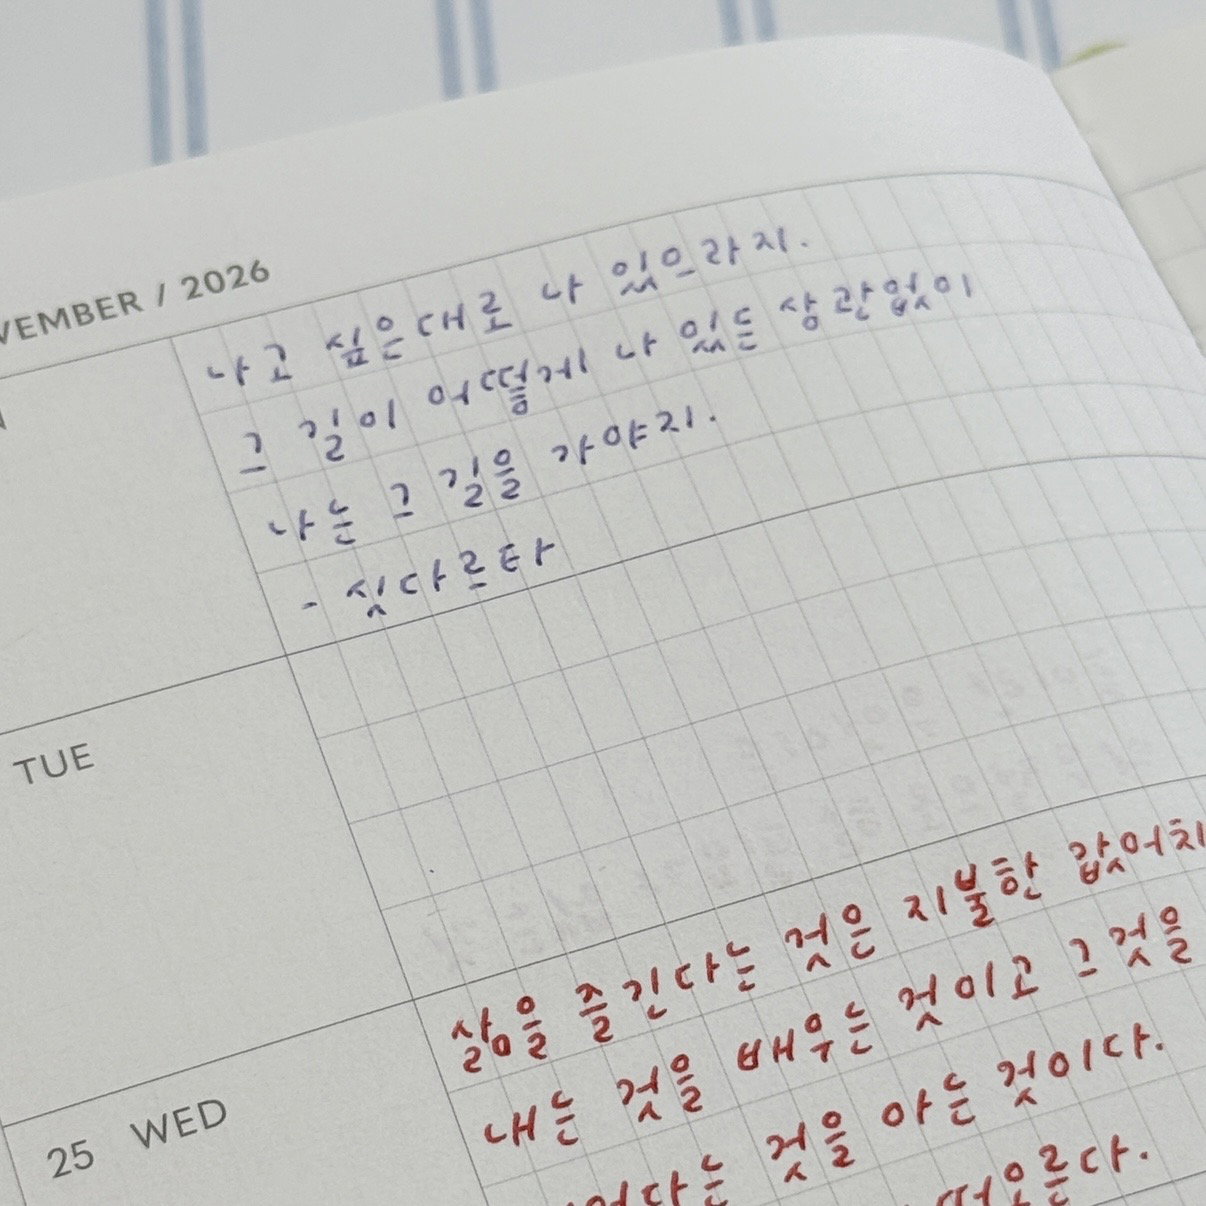 VEMBER / 2026
나고 싶은대로 나 있으라지.
그 길이 어떻게 나 있든 상관없이
나는 그 길을 가야지.
- 싯다르타
TUE
25 WED
삶을 즐긴다는 것은 지불한 값어치
내는 것을 배우는 것이고 그것을
것을 아는 것이다.